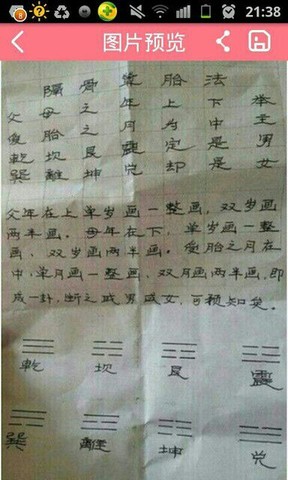 21:38
图片预览
隔骨 胎法
父母之年上下举
受胎之月为中主
乾坎艮震定是男
巽離坤兑却是女
父年在上单岁画一整画,双岁画
两半画。母年在下,单岁画一整
画、双岁画两半画。受胎之月在
中,单月画一整画,双月画两半画,即
成一卦,断之或男或女,可预知矣。
乾 坎 艮 震
巽 離 坤 兑